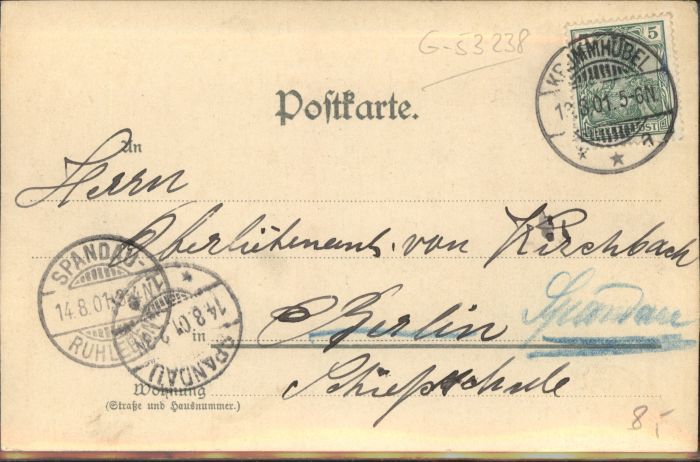 G-53238
5
KRUMMHÜBEL
13.8.01.5-6N.
a
Postkarte.
An
Herrn
Oberlieutenant von Kirschbach
SPANDAU-
14.8.01
RUHLEBEN
14.8.01
SPANDAU
Berlin Spandau
in
Schießschule
Wohnung
(Straße und Hausnummer.)
8,-